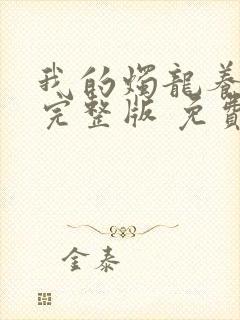 我的燭龍養
完整版 免費
金泰